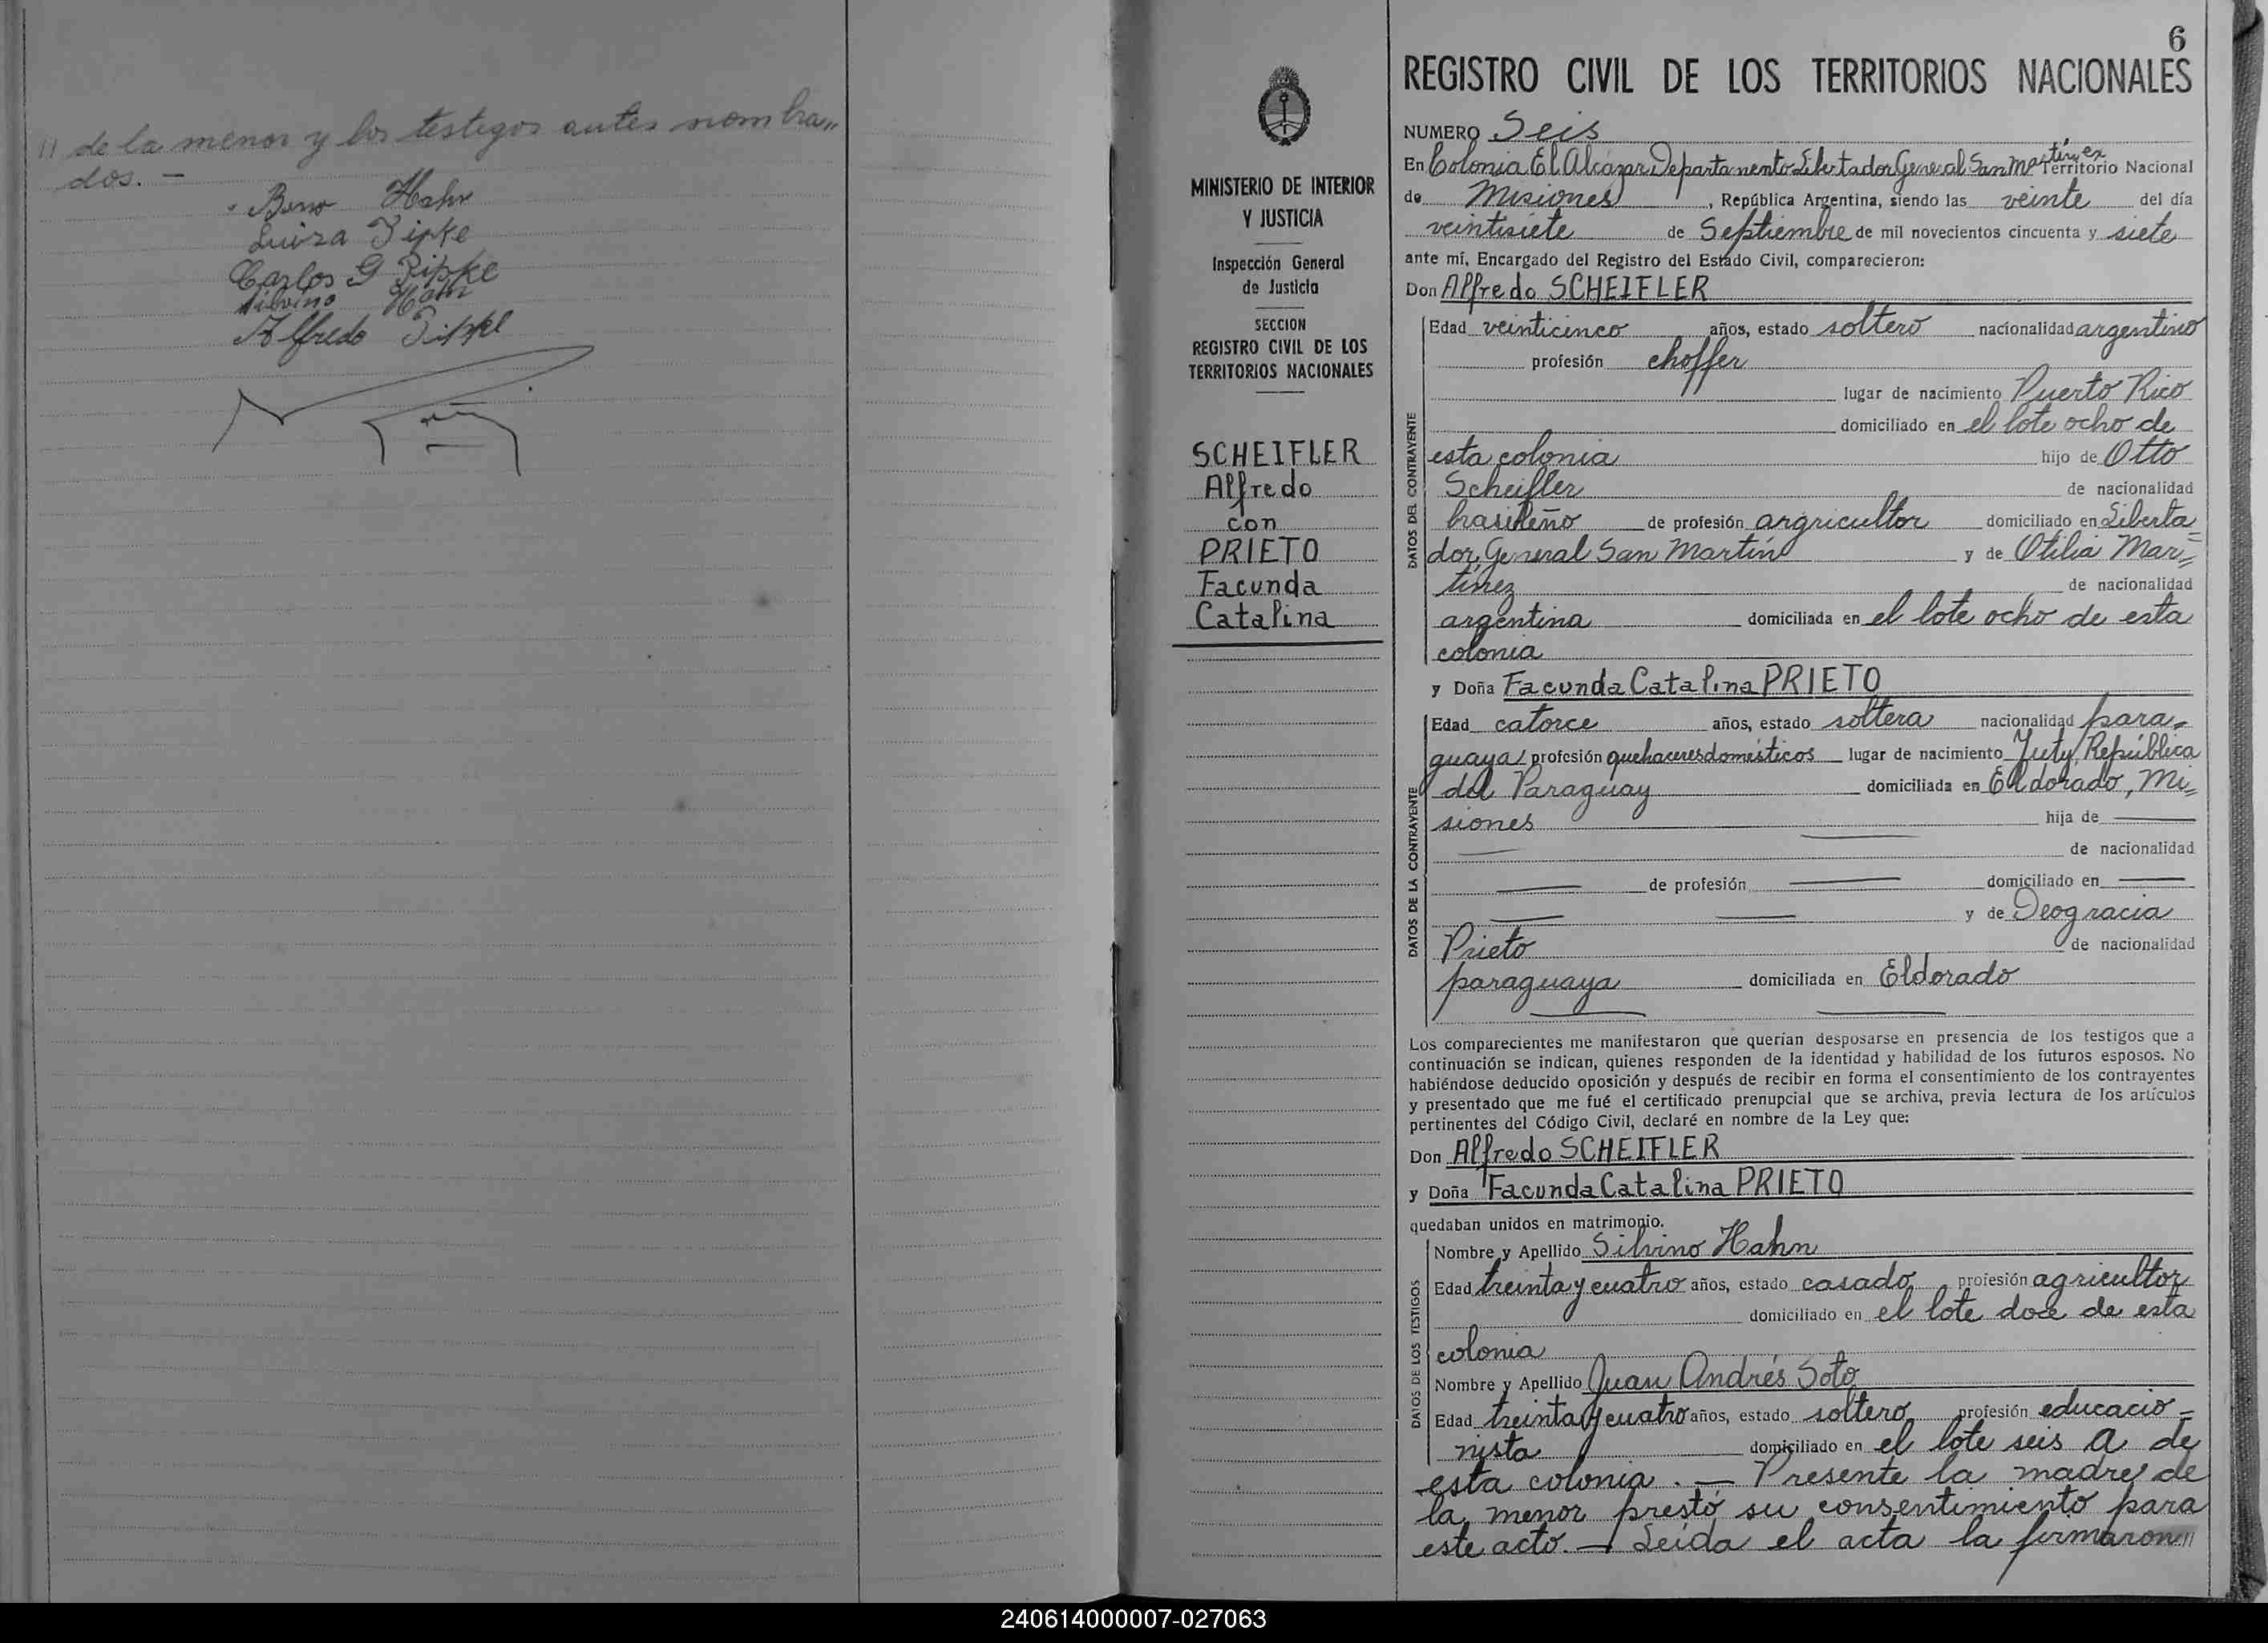 " de la menor y los testigos antes nombra"
dos. -
Beno Hahn
Luiza Pipke
Carlos G Pipke
Silvino Hahn
Alfredo Pipke
6
REGISTRO CIVIL DE LOS TERRITORIOS NACIONALES
MINISTERIO DE INTERIOR
Y JUSTICIA
Inspección General
de Justicia
SECCION
REGISTRO CIVIL DE LOS
TERRITORIOS NACIONALES
SCHEIFLER
Alfredo
con
PRIETO
Facunda
Catalina
NUMERO Seis
En Colonia El Alcázar Departamento Libertador General San Martín, ex Territorio Nacional
de Misiones, República Argentina, siendo las veinte del día
veintisiete de Septiembre de mil novecientos cincuenta y siete
ante mí, Encargado del Registro del Estado Civil, comparecieron:
Don Alfredo SCHEIFLER
DATOS DEL CONTRAYENTE
Edad veinticinco años, estado soltero nacionalidad argentino
profesión choffer
lugar de nacimiento Puerto Rico
domiciliado en el lote ocho de
esta colonia hijo de Otto
Scheifler de nacionalidad
brasileño de profesión argricultor domiciliado en Liberta=
dor General San Martín y de Otilia Mar=
tínez de nacionalidad
argentina domiciliada en el lote ocho de esta
colonia
y Doña Facunda Catalina PRIETO
DATOS DE LA CONTRAYENTE
Edad catorce años, estado soltera nacionalidad para=
guaya profesión quehaceres domésticos lugar de nacimiento Yuty, República
del Paraguay domiciliada en Eldorado, Mi=
siones hija de —
— de nacionalidad
— de profesión — domiciliado en —
— — y de Deogracia
Prieto de nacionalidad
paraguaya domiciliada en Eldorado
Los comparecientes me manifestaron que querían desposarse en presencia de los testigos que a
continuación se indican, quienes responden de la identidad y habilidad de los futuros esposos. No
habiéndose deducido oposición y después de recibir en forma el consentimiento de los contrayentes
y presentado que me fué el certificado prenupcial que se archiva, previa lectura de los artículos
pertinentes del Código Civil, declaré en nombre de la Ley que:
Don Alfredo SCHEIFLER
y Doña Facunda Catalina PRIETO
quedaban unidos en matrimonio.
DATOS DE LOS TESTIGOS
Nombre y Apellido Silvino Hahn
Edad treinta y cuatro años, estado casado profesión agricultor
domiciliado en el lote doce de esta
colonia
Nombre y Apellido Juan Andrés Soto
Edad treinta y cuatro años, estado soltero profesión educacio=
nista domiciliado en el lote seis a de
esta colonia. — Presente la madre de
la menor prestó su consentimiento para
este acto. — Leída el acta la firmaron"
240614000007-027063